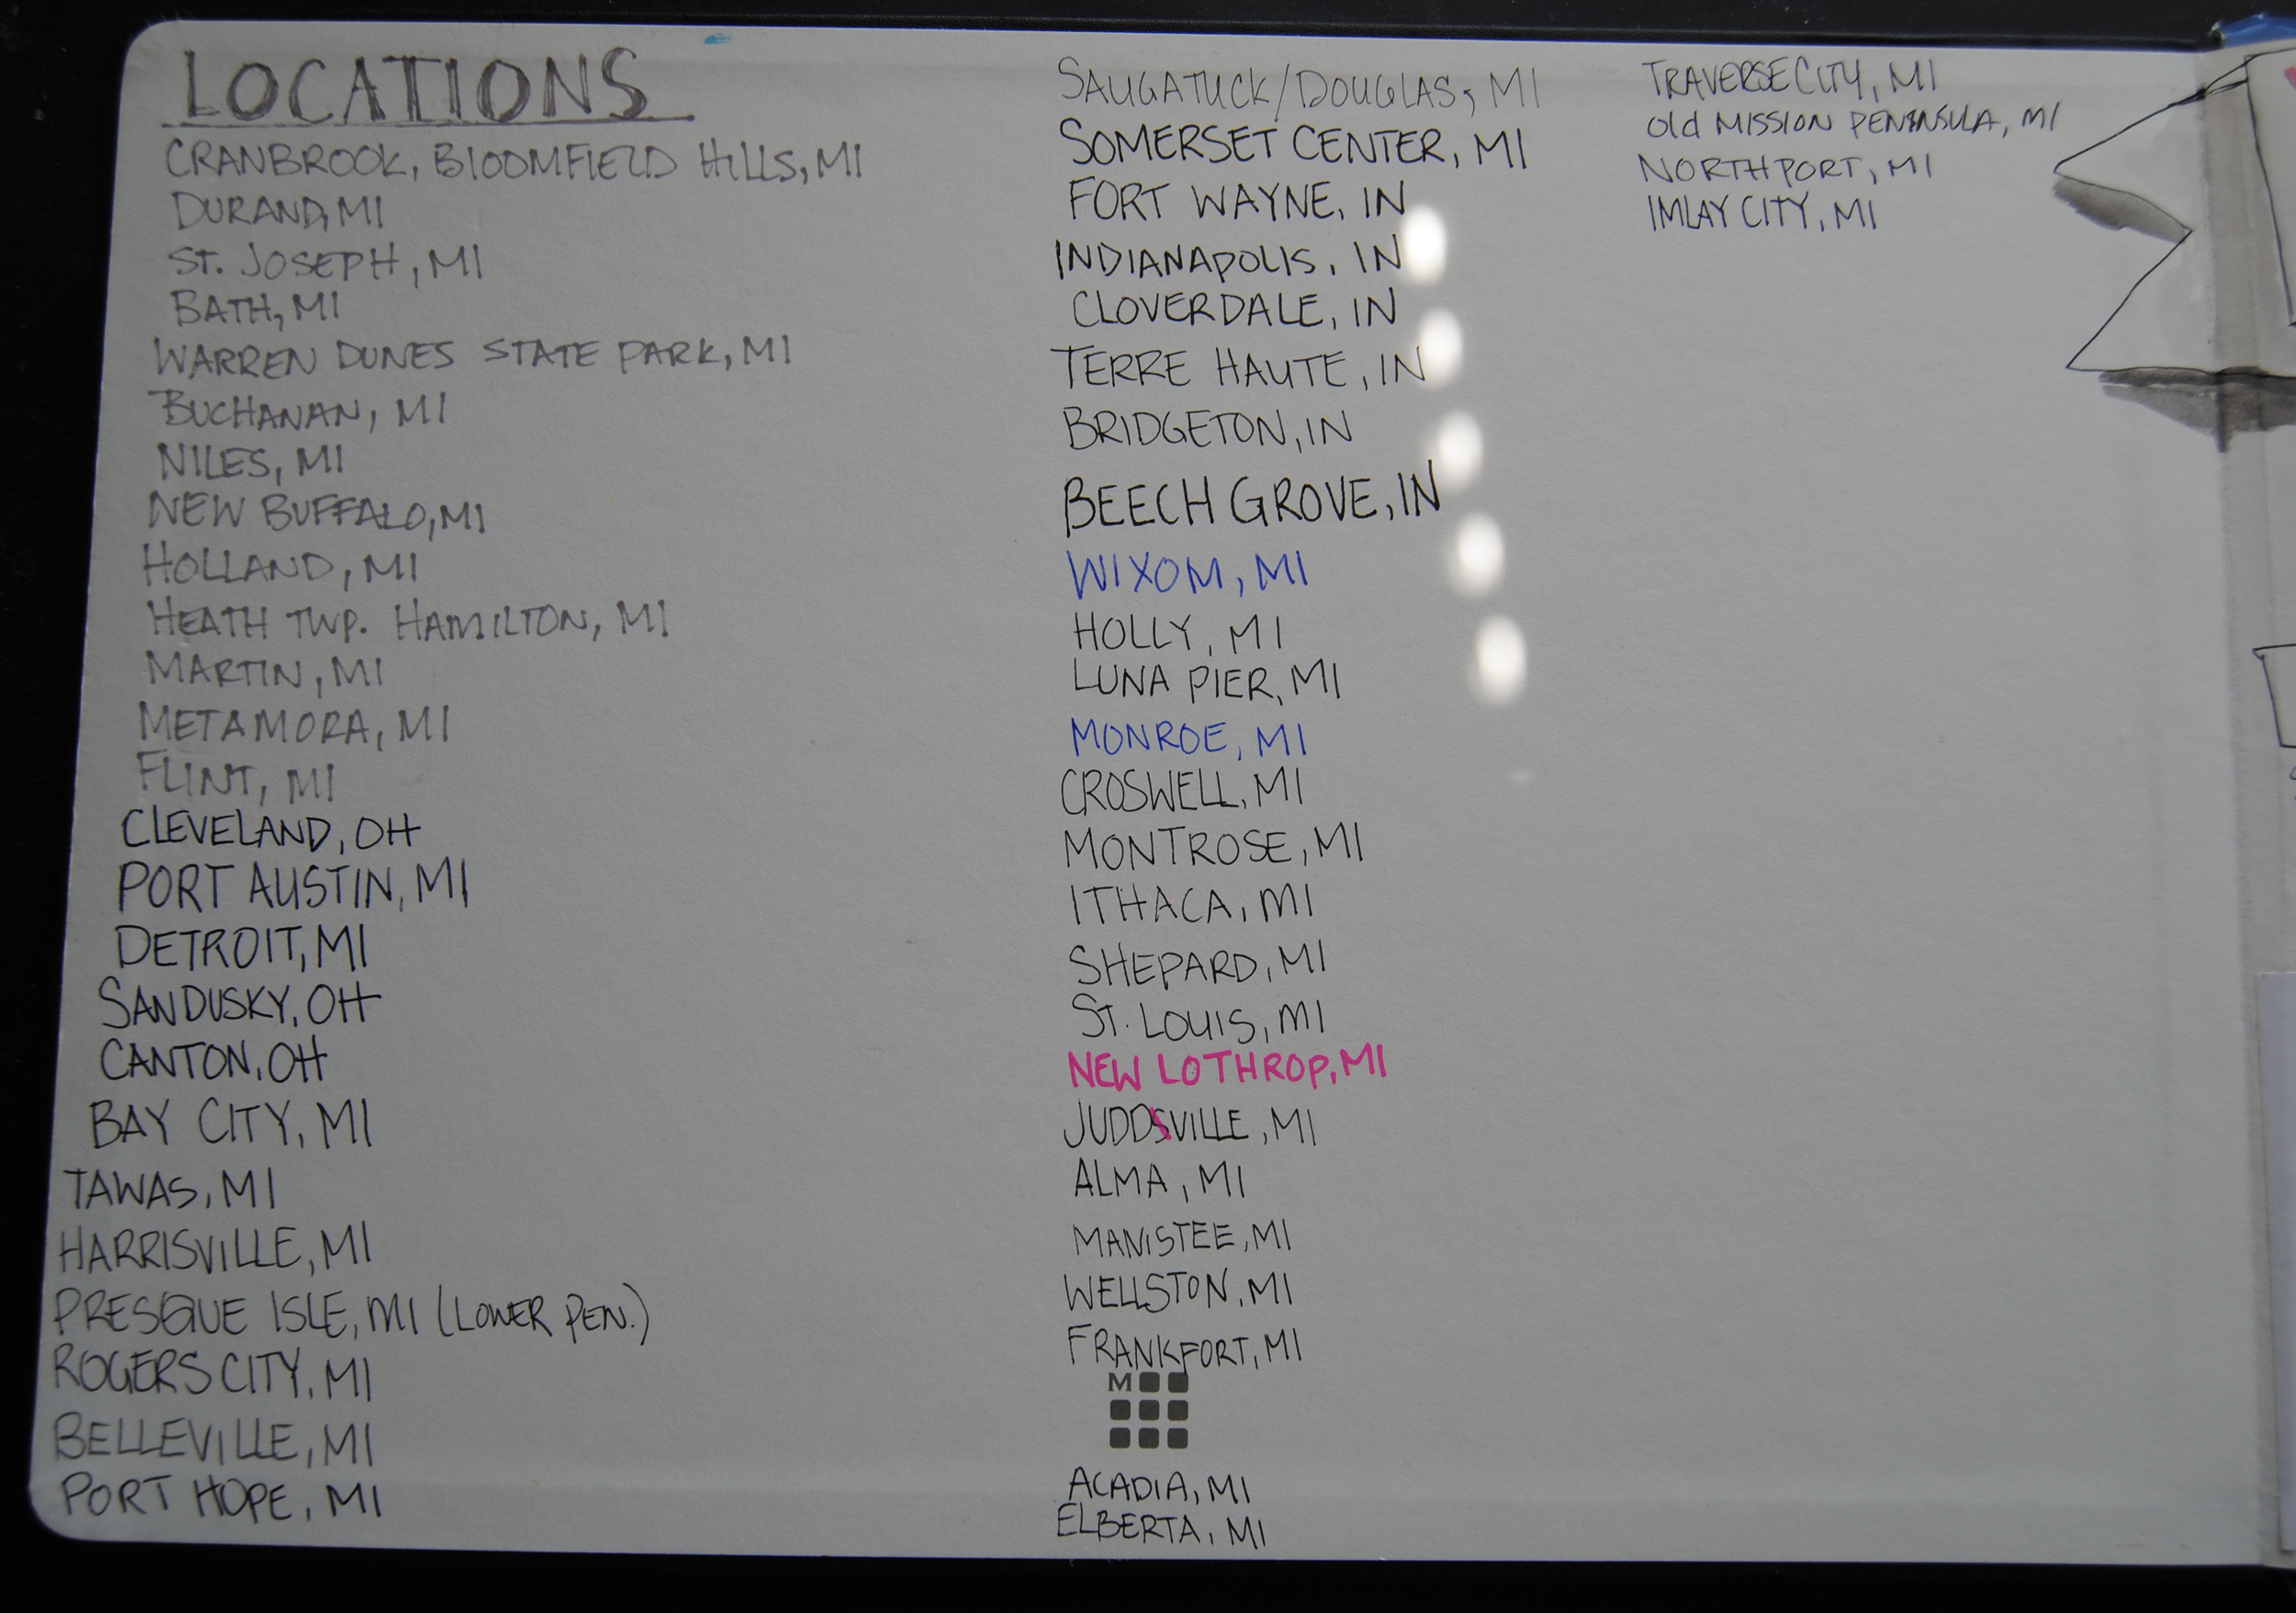 LOCATIONS
CRANBROOK, BLOOMFIELD HILLS, MI
DURAND, MI
ST. JOSEPH, MI
BATH, MI
WARREN DUNES STATE PARK, MI
BUCHANAN, MI
NILES, MI
NEW BUFFALO, MI
HOLLAND, MI
HEATH TWP. HAMILTON, MI
MARTIN, MI
METAMORA, MI
FLINT, MI
CLEVELAND, OH
PORT AUSTIN, MI
DETROIT, MI
SANDUSKY, OH
CANTON, OH
BAY CITY, MI
TAWAS, MI
HARRISVILLE, MI
PRESQUE ISLE, MI (LOWER PEN.)
ROGERS CITY, MI
BELLEVILLE, MI
PORT HOPE, MI
SAUGATUCK/DOUGLAS, MI
SOMERSET CENTER, MI
FORT WAYNE, IN
INDIANAPOLIS, IN
CLOVERDALE, IN
TERRE HAUTE, IN
BRIDGETON, IN
BEECH GROVE, IN
WIXOM, MI
HOLLY, MI
LUNA PIER, MI
MONROE, MI
CROSWELL, MI
MONTROSE, MI
ITHACA, MI
SHEPARD, MI
ST. LOUIS, MI
NEW LOTHROP, MI
JUDDSVILLE, MI
ALMA, MI
MANISTEE, MI
WELLSTON, MI
FRANKFORT, MI
M
ACADIA, MI
ELBERTA, MI
TRAVERSE CITY, MI
Old MISSION PENINSULA, MI
NORTHPORT, MI
IMLAY CITY, MI